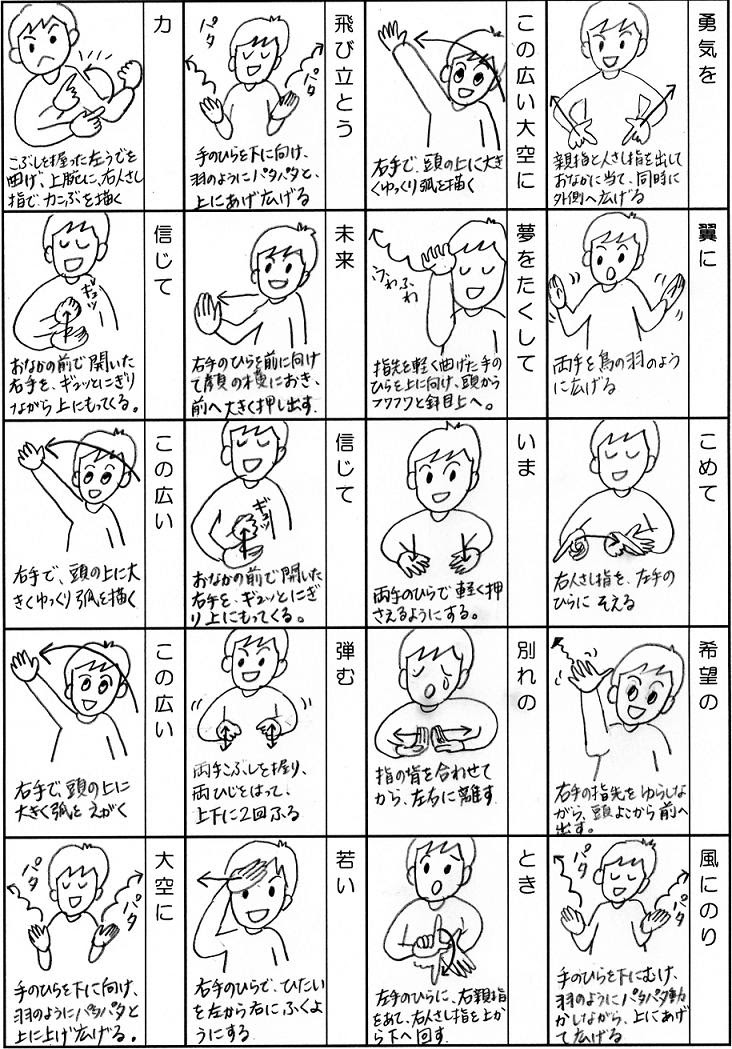 勇気を
親指と人さし指を出して
おなかに当て、同時に
外側へ広げる
翼に
両手を鳥の羽のよう
に広げる
こめて
右人さし指を、左手の
ひらに そえる
希望の
右手の指先をゆらしな
がら、頭よこから前へ
出す。
風にのり
手のひらを下にむけ、
羽のようにパタパタ動
かしながら、上にあげ
て広げる
パタ
パタ
この広い大空に
右手で、頭の上に大き
くゆっくり弧を描く
夢をたくして
ふわふわ
指先を軽く曲げた手の
ひらを上に向け、頭から
フワフワと斜目上へ。
いま
両手のひらで軽く押
さえるようにする。
別れの
指の背を合わせて
から、左右に離す
とき
左手のひらに、右親指
をあて、右人さし指を上か
ら下へ回す
飛び立とう
パタ
パタ
手のひらを下に向け、
羽のようにパタパタと、
上にあげ広げる
未来
右手のひらを前に向け
て顔の横におき、
前へ大きく押し出す.
信じて
ギュッ
おなかの前で開いた
右手を、ギュッとにぎ
り上にもってくる。
弾む
両手こぶしを握り、
両ひじをはって、
上下に2回ふる
若い
右手のひらで、ひたい
を左から右にふくよ
うにする
力
こぶしを握った左うでを
曲げ、上腕に、右人さし
指で、力こぶを描く
信じて
ギュッ
おなかの前で開いた
右手を、ギュッとにぎり
ながら上にもってくる。
この広い
右手で、頭の上に大
きくゆっくり弧を描く
この広い
右手で、頭の上に
大きく弧を えがく
大空に
パタ
パタ
手のひらを下に向け、
羽のようにパタパタと
上に上げ広げる。